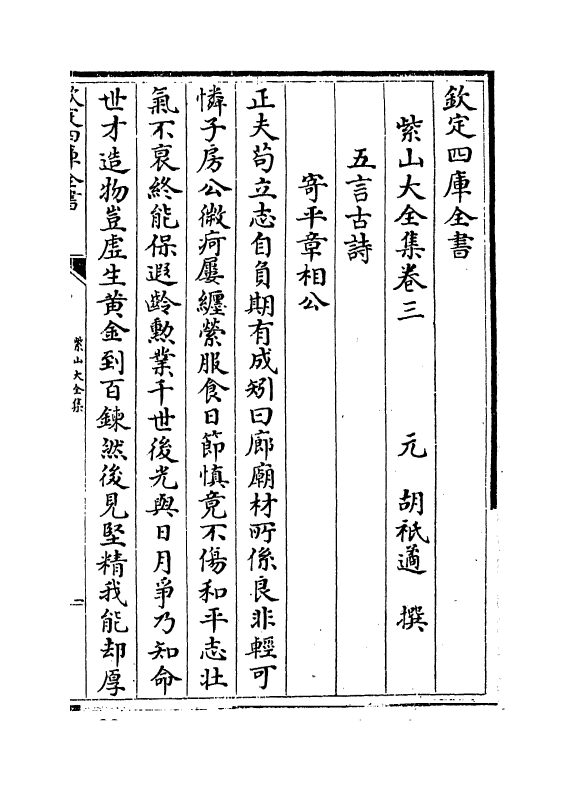 欽定四庫全書
紫山大全集卷三
元 胡祗遹 撰
五言古詩
寄平章相公
正夫茍立志自負期有成矧曰廊廟材所係良非輕可
憐子房公微疴屢纒縈服食日節慎竟不傷和平志壯
氣不衰終能保遐齡勲業千世後光與日月爭乃知命
世才造物豈虚生黄金到百鍊然後見堅精我能却厚
欽定四庫全書
紫山大全集
一